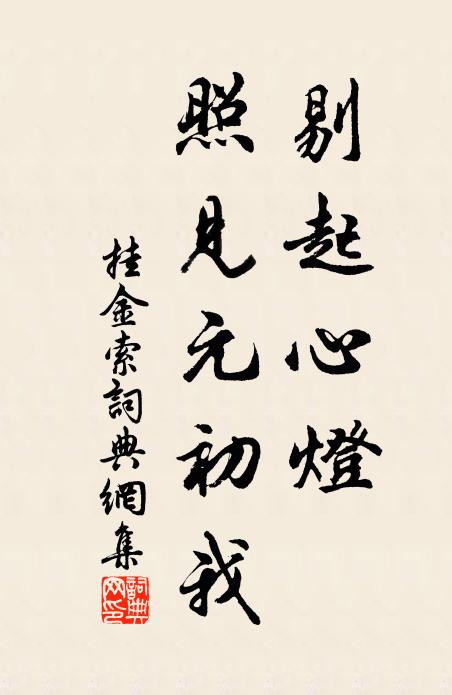 剔起心燈
照見元初我
挂金索詞典網集
詞典网印